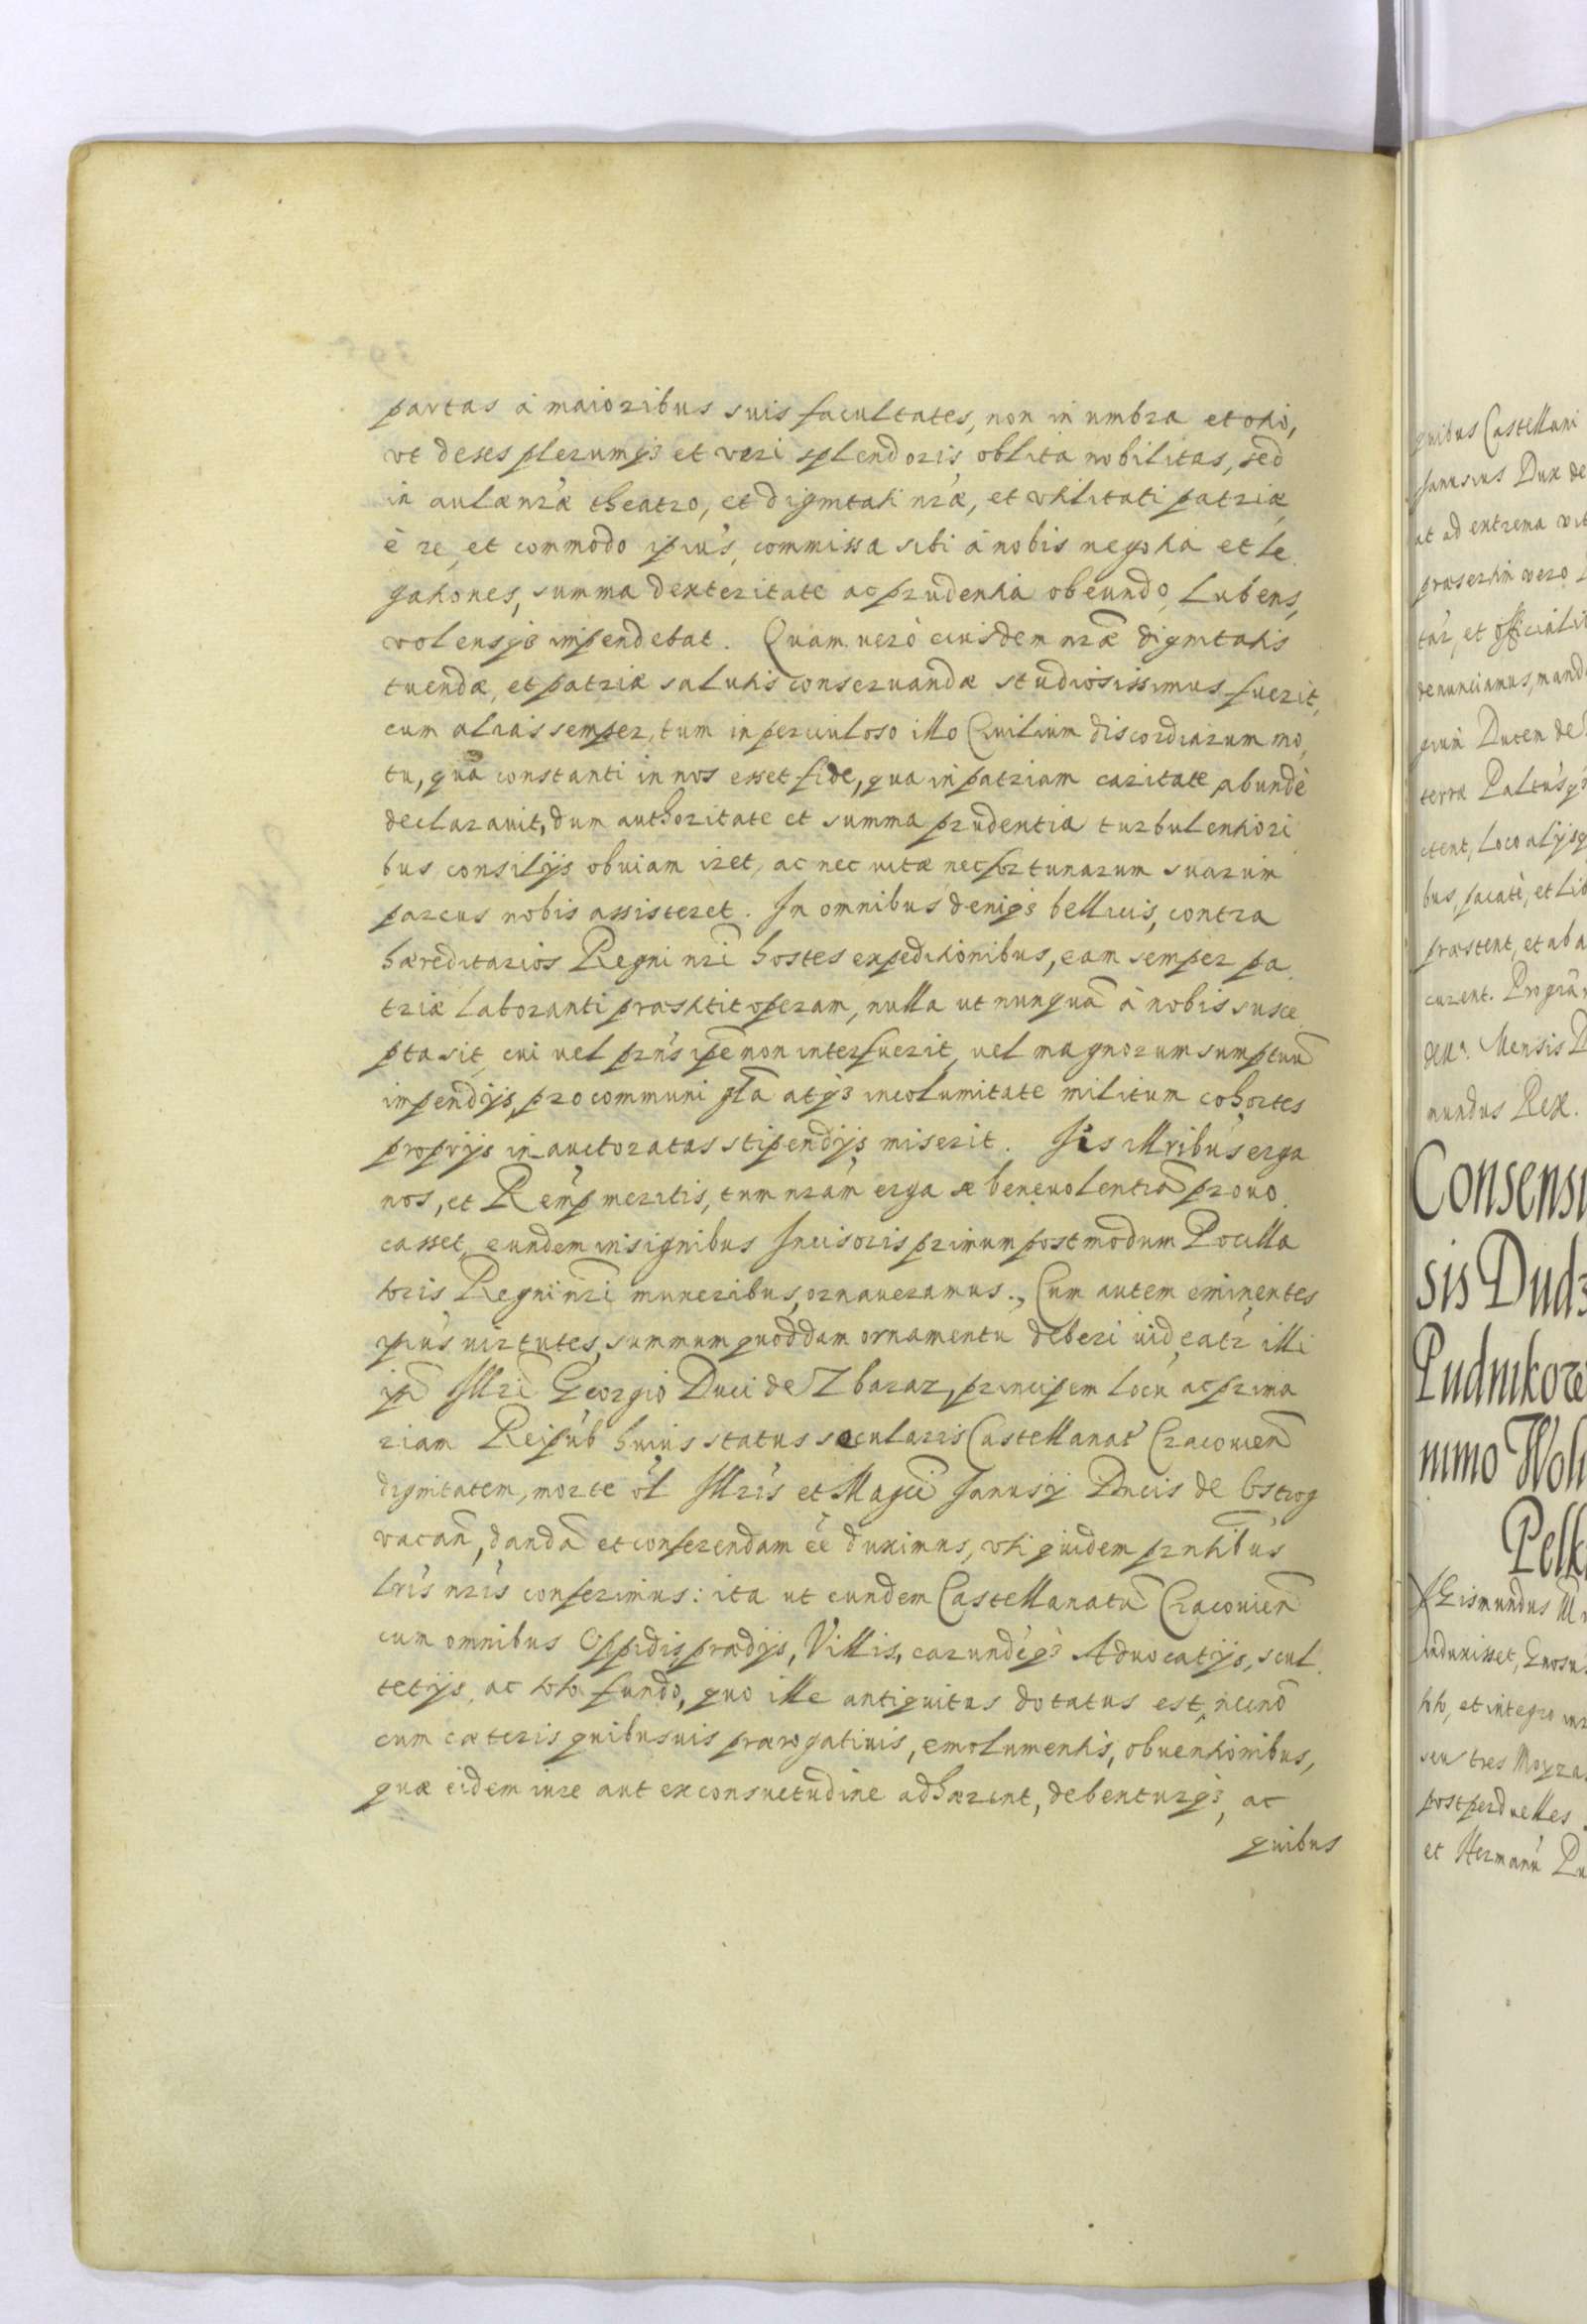 partas à maioribus suis facultates, non in umbra et otio,
vt deses plerumq3 et veri splendoris oblita nobilitas, sed
in aulæ nræ theatro, et dignitati nræ, et vtilitati patriæ
è re, et commodo ipius, commissa sibi à nobis negotia et le
gationes, summa dexteritate ac prudentia obeundo, Lubens,
volensq3 impendebat. Quam verò eiusdem nræ dignitatis
tuendæ, et patriæ salutis conseruandæ studiosissimus fuerit,
cum aliàs semper, tum in periculoso illo Ciuilium discordiarum mo
tu, quà constanti in nos esset fide, qua in patriam caritate abundè
declarauit, dum authoritate et summa prudentia turbulentiori
bus consilijs obuiam iret, ac nec vitæ nec fortunarum suarum
parcus nobis assisteret. In omnibus deniq3 bellicis, contra
hæreditarios Regni nri hostes expeditionibus, eam semper pa
triæ laboranti præstitit operam, nulla ut nunquã à nobis susce
pta sit, cui uel prns ipe non interfuerit, uel magnorum sumptuũ
impendijs, pro communi gla atq3 incolumitate militum cohortes
proprijs in auctoratas stipendijs miserit. Iis illribus erga
nos, et Remp meritis, tum nram erga se beneuolentiã prouo
casset, eundem insignibus Incisoris primum postmodum Pocilla
toris Regni nri muneribus, ornaueramus. Cum autem eminentes
ipius uirtutes, summum quoddam ornamentũ deberi uideatr illi
ip Illri Georgio Duci de Zbaraz, principem locũ ac prima
riam Reipub huius status sæcularis Castellanat Cracouien
dignitatem, morte ol Illris et Magci Janusij Ducis de Ostrog
vacan, dandã et conferendam ee duximus, vti quidem prntibus
lris nris conferimus: ita ut eundem Castellanatũ Cracouien
cum omnibus Oppidis prædijs, Villis, earundẽq3 Aduocatijs, scul
tetijs, ac toto fundo, quo ille antiquitus dotatus est, necnõ
cum cæteris quibusuis prærogatiuis, emolumentis, obuentionibus,
quæ eidem iure aut ex consuetudine adhærent, debenturq3, ac
quibus
quibus Castellani
Janusius Dux de
at ad extrema vit
præsertim vero
tar, et officiali
denunciamus, mand
gium Ducem de
terræ
etent, Loco alijsq
bus, pacatè, et lib
præstent, et ab a
curent.
Mensis D
mundus Rex.
Consensu
sis Dudz
Pudnikore
nimo Woli
Pelk
Sigismundus
induxisset,
toto, et integro
seu tres Moyza
post perduelles
et Hermanũ Pu